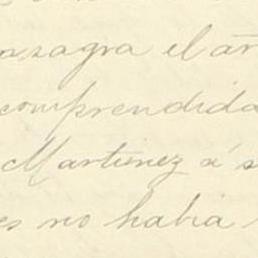 asagra el
comprendida
Martinez á s
es no habia